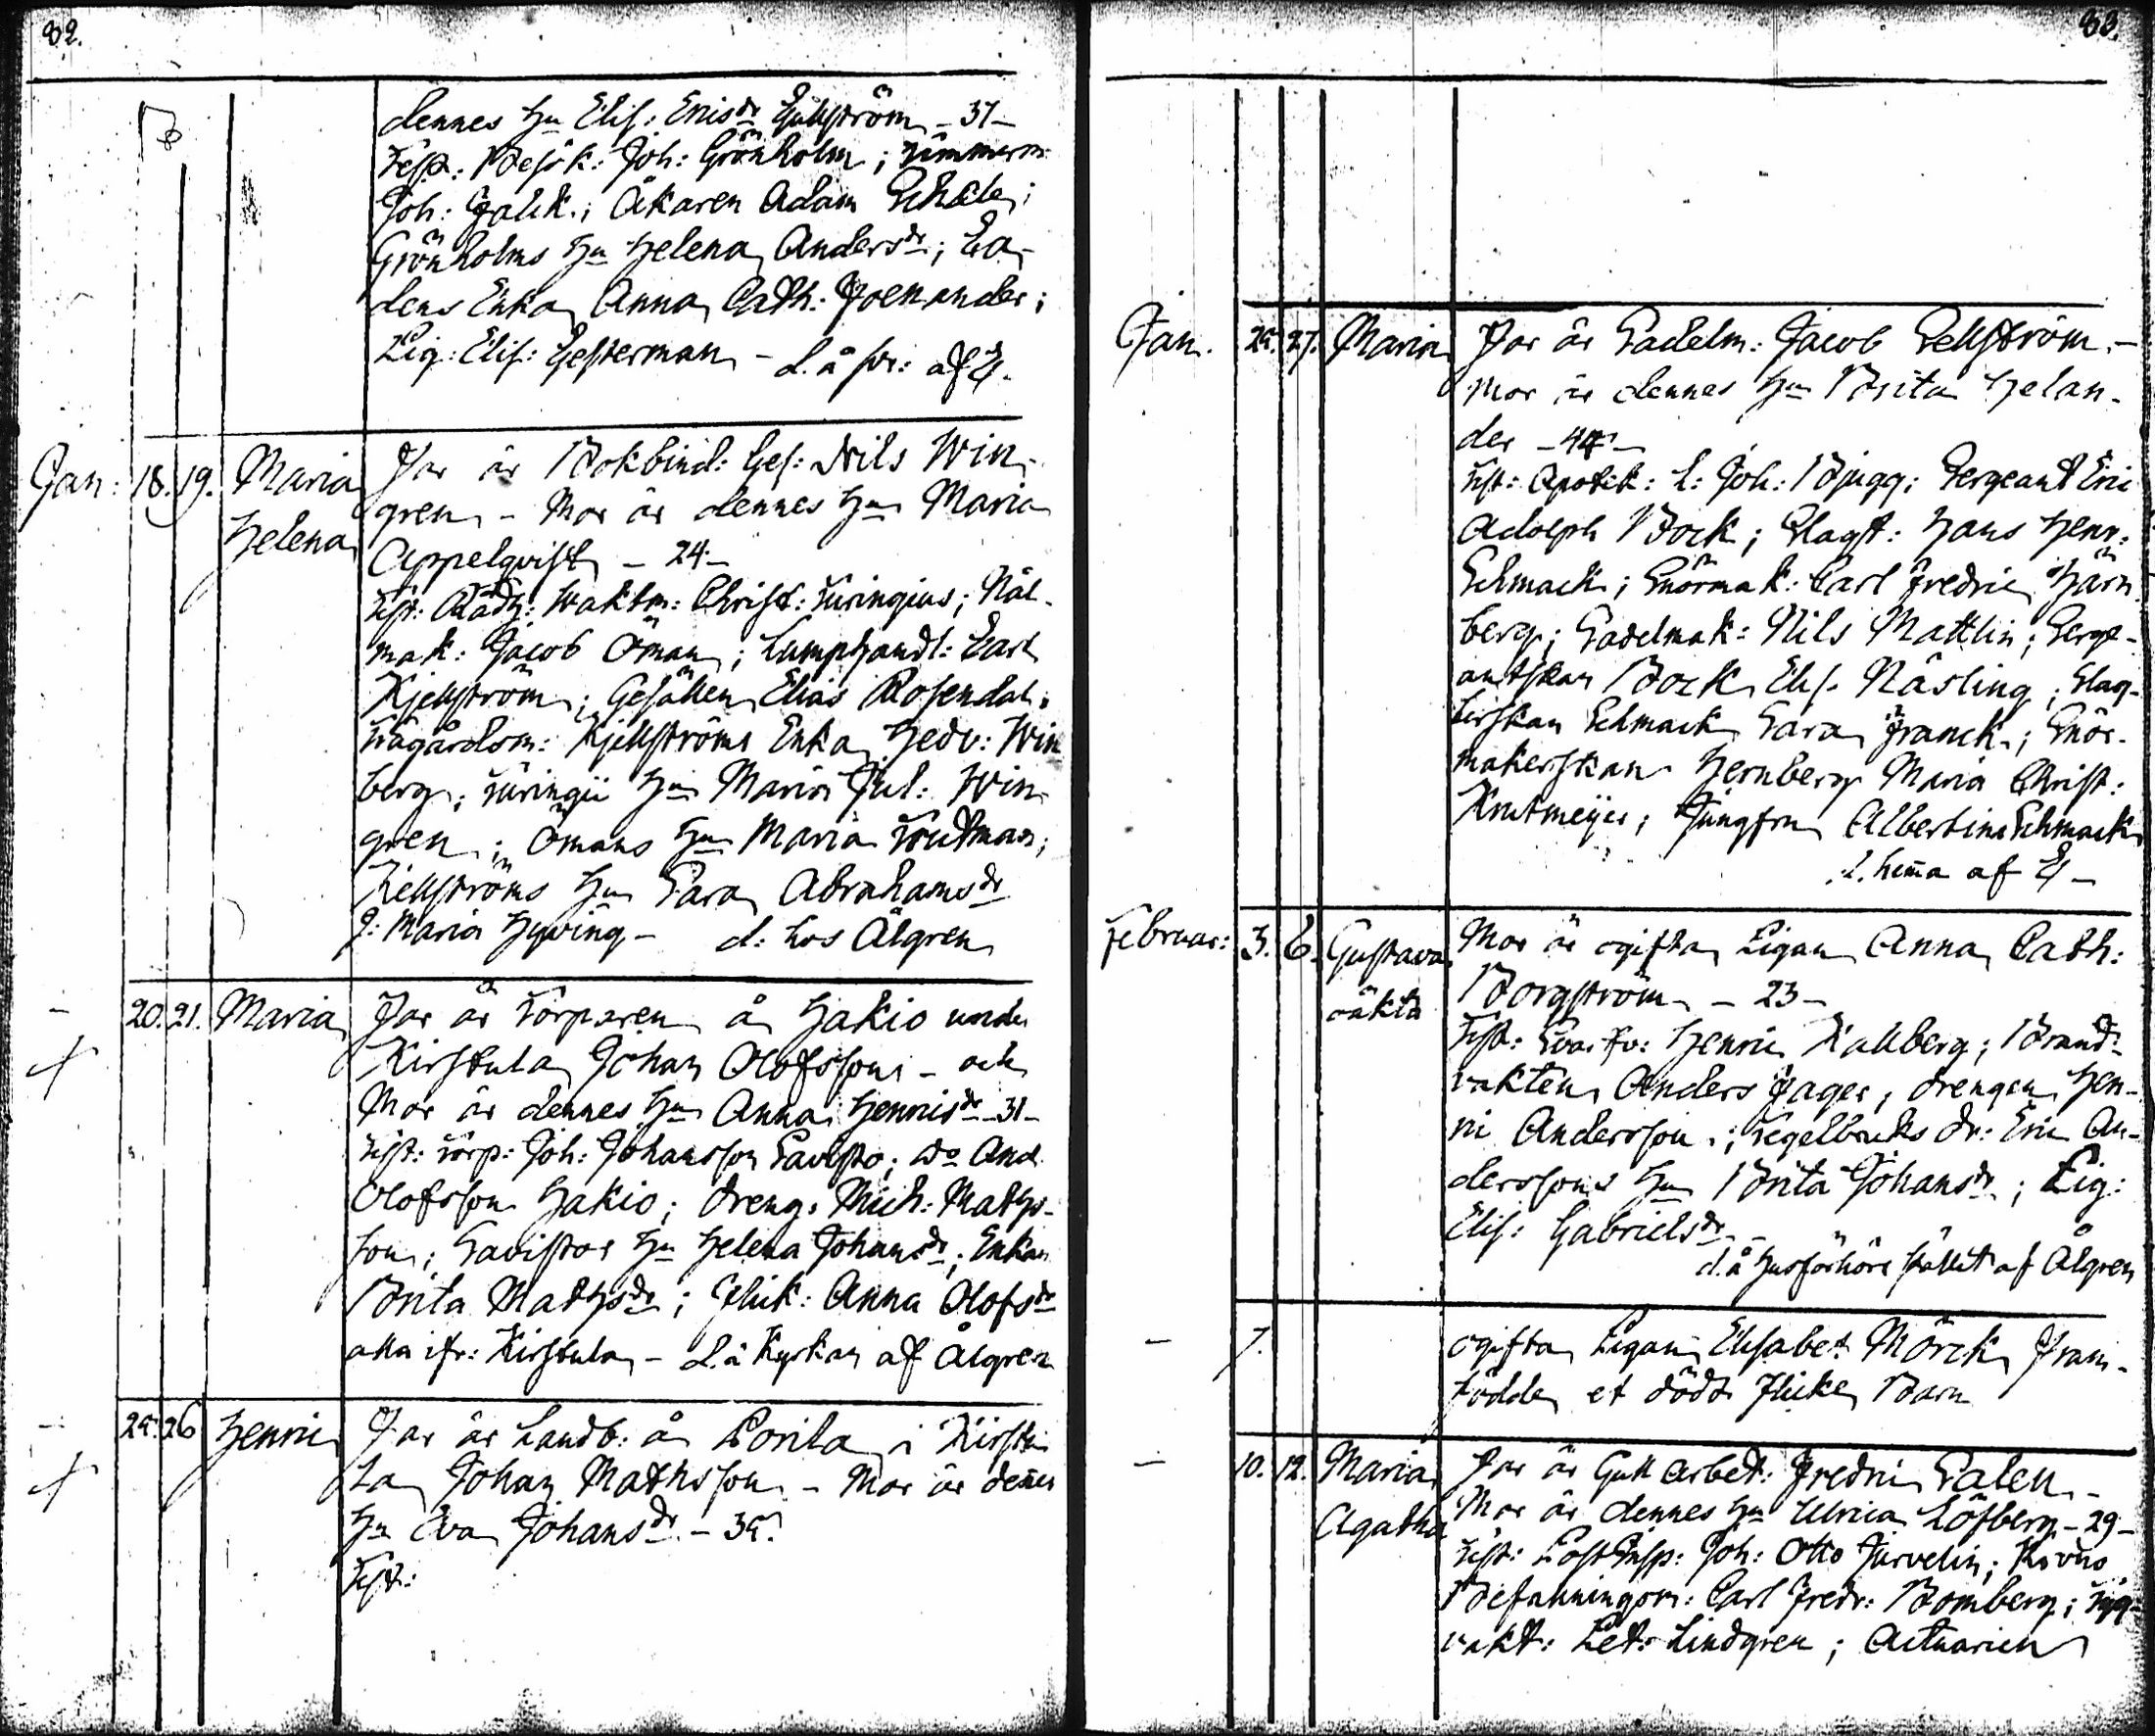 82.
dennes Hu Elis: Ericsdr Eckström - 37 -
Test: Besök: Joh: Grönholm; Timmerm:
Joh: Falck; Åkaren Adam Schale;
Grönholms Hu Helena Andersdr; Ea-
lens Enka Anna Cath: Foenander;
Pig: Elis: Gesterman - d. å af E.
Jan: 18. 19. Maria Helena
Far är Bokbind: Ges: Nils Win-
gren - Mor är dennes Hu Maria
Appelqvist - 24 -
Test: Rådh: Waktm: Christ: Turingius; Nål-
mak: Jacob Öman; Lumphandl: Carl
Kjellström; Gesällen Elias Rosendal;
Trägårdsm: Kjellströms Enka Hedv: Win
berg; Turingii Hu Maria Jul: Win-
gren; Ömans Hu Maria Troutman;
Kjellströms Hu Sara Abrahamsdr
J: Maria Hywing - d: hos Ålgren
- 20. 21. Maria
Far är Torparen å Hakio under
Kirstula Johan Olofsson - och
Mor är dennes Hu Anna Henricsdr - 31 -
Test: Torp: Joh: Johansson Savisto; do And
Olofsson Hakio; Dreng: Mich: Maths-
son; Savistos Hu Helena Johansdr; Enkan
Brita Mathsdr; Flick: Anna Olofsdr
alla ifr: Kirstula - d. å Kyrkan af Ålgren
- 25. 26 Henric
Far är Landb: å Porila i Kirstu
la Johan Mathsson - Mor är dennes
Hu Eva Johansdr - 35.
Test:
83.
Jan. 25. 27. Maria
Far är Sadelm: Jacob Sellström -
Mor är dennes Hu Brita Helan-
der - 44 -
Test: Apotek: L: Joh: Bjugg; Sergeant Eric
Adolph Bock; Slagt: Hans Henr:
Schmack; Snörmak: Carl Fredric Härn
berg; Sadelmak: Nils Mattlin; Serge-
antskan Bock Elis. Näsling; Slag-
terskan Schmack Sara Franck; Snör-
makerskan Hernberg Maria Christ:
Krutmeijer; Jungfru Albertina Schmack
d. hema af E -
Februar: 3. 6. Gustava oäkta
Mor är ogifta Pigan Anna Cath:
Borgström - 23 -
Test: Henric Kallberg; Brand-
vakten Anders Jager; Drengen Hen-
ric Andersson; Tegelbruks dr: Eric An-
derssons Hu Brita Johansdr; Pig:
Elis: Gabrielsdr -
d. å Husförhörs stället af Ålgren
- 7.
ogifta Pigan Elisabet Mörck Fram-
födde et dödt Flicke Barn
- 10. 12. Maria Agatha
Far är Gull arbet: Fredric Palen -
Mor är dennes Hu Ulrica Löfberg - 29 -
Test: Post Insp: Joh: Otto Jurvelin; Krono
Befallningsm: Carl Fredr: Bomberg; Tyg-
vakt: Pet: Lindgren; Actuarien